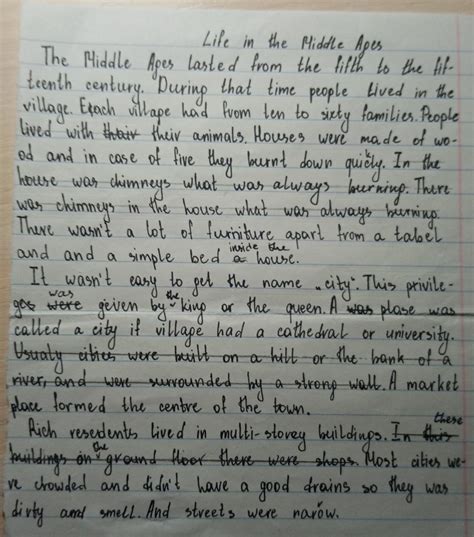 Life in the Middle Ages
The Middle Ages lasted from the fifth to the fif-
teenth century. During that time people lived in the
village. Each village had from ten to sixty families. People
lived with thair their animals. Houses were made of wo-
od and in case of five they burnt down quickly. In the
house was chimneys what was always burning. There
was chimneys in the house what was always burning.
There wasn't a lot of furniture apart from a tabel
and and a simple bed a inside the house.
It wasn't easy to get the name „city". This privile-
ges were was geven by the king or the queen. A was plase was
called a city if village had a cathedral or university.
Usualy cities were built on a hill or the bank of a
river, and were surrounded by a strong wall. A market
place formed the centre of the town.
Rich resedents lived in multi-storey buildings. In this these
buildings on the ground floor there were shops. Most cities we-
re chowded and didn't have a good drains so they was
dirty and smell. And streets were narow.